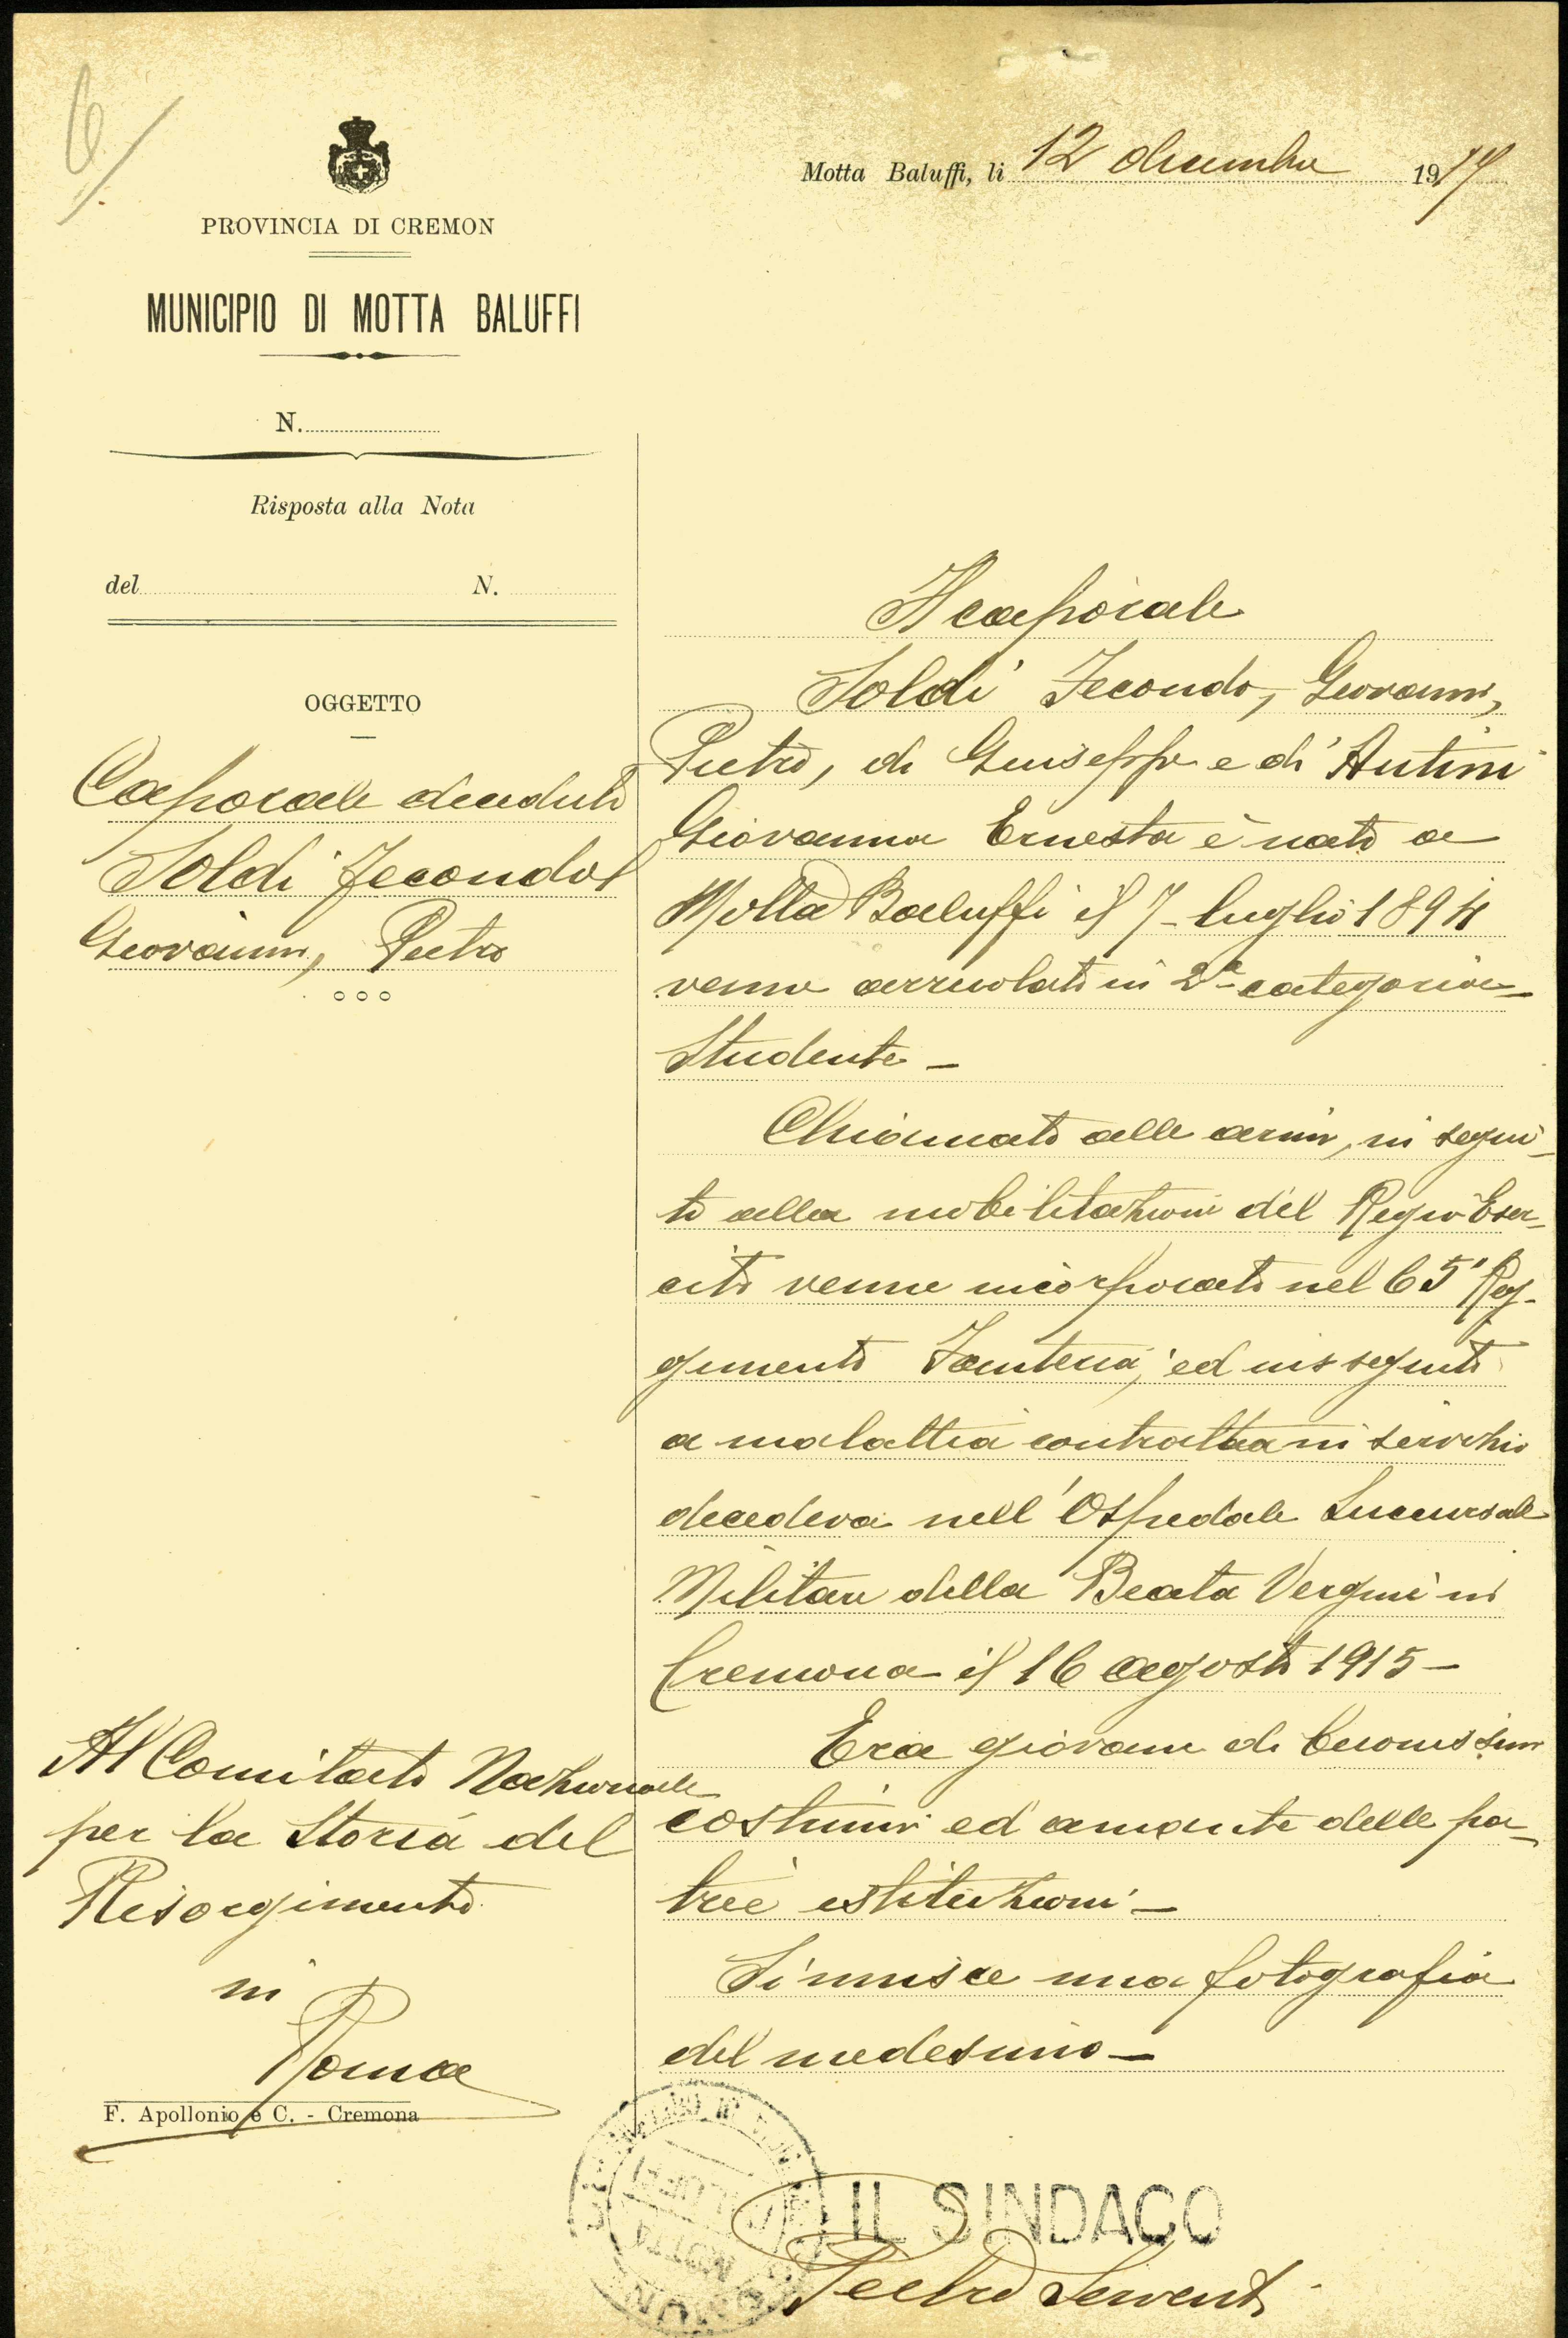 6/
Motta Baluffi, li 12 dicembre 1917
PROVINCIA DI CREMON
MUNICIPIO DI MOTTA BALUFFI
N.
Risposta alla Nota
del N.
OGGETTO
Caporale deceduto
Soldi Secondo
Giovanni, Pietro
Al Comitato Nazionale
per la Storia del
Risorgimento
in
Roma
F. Apollonio e C. - Cremona
Il caporale
Soldi Secondo, Giovanni,
Pietro, di Giuseppe e di Antini
Giovanna Ernesta è nato a
Motta Baluffi il 7 luglio 1894
venne arruolato in 2ª categoria -
Studente -
Chiamato alle armi, in segui-
to alla mobilitazione del Regio Eser-
cito venne incorporato nel 65° Reg-
gimento Fanteria, ed in seguito
a malattia contratta in servizio
decedeva nell'Ospedale Succursale
Militare della Beata Vergine in
Cremona il 16 agosto 1915 -
Era giovane di buonissimi
costumi ed amante delle pa-
trie istituzioni -
Si unisce una fotografia
del medesimo -
IL SINDACO
Pietro Serventi